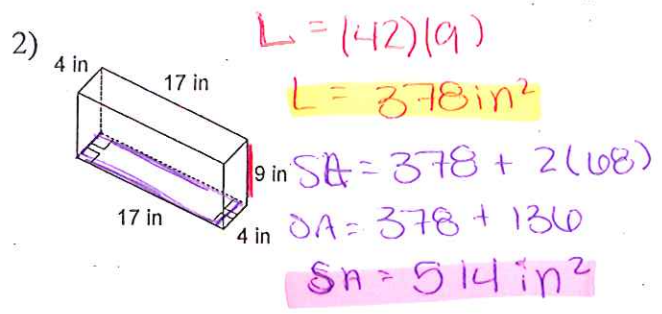 2)
4 in
17 in
9 in
17 in
4 in
L = (42)(9)
L = 378 in²
SA = 378 + 2(68)
SA = 378 + 136
SA = 514 in²